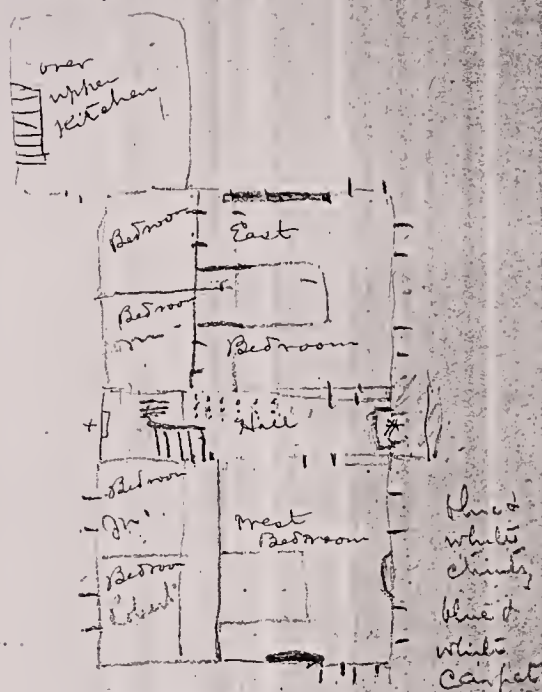 over
upper
Kitchen
Bedroom
East
Bedroom
Bedroom
Hall
Bedroom
West
Bedroom
Bedroom
blue &
white
chintz
blue &
white
carpet